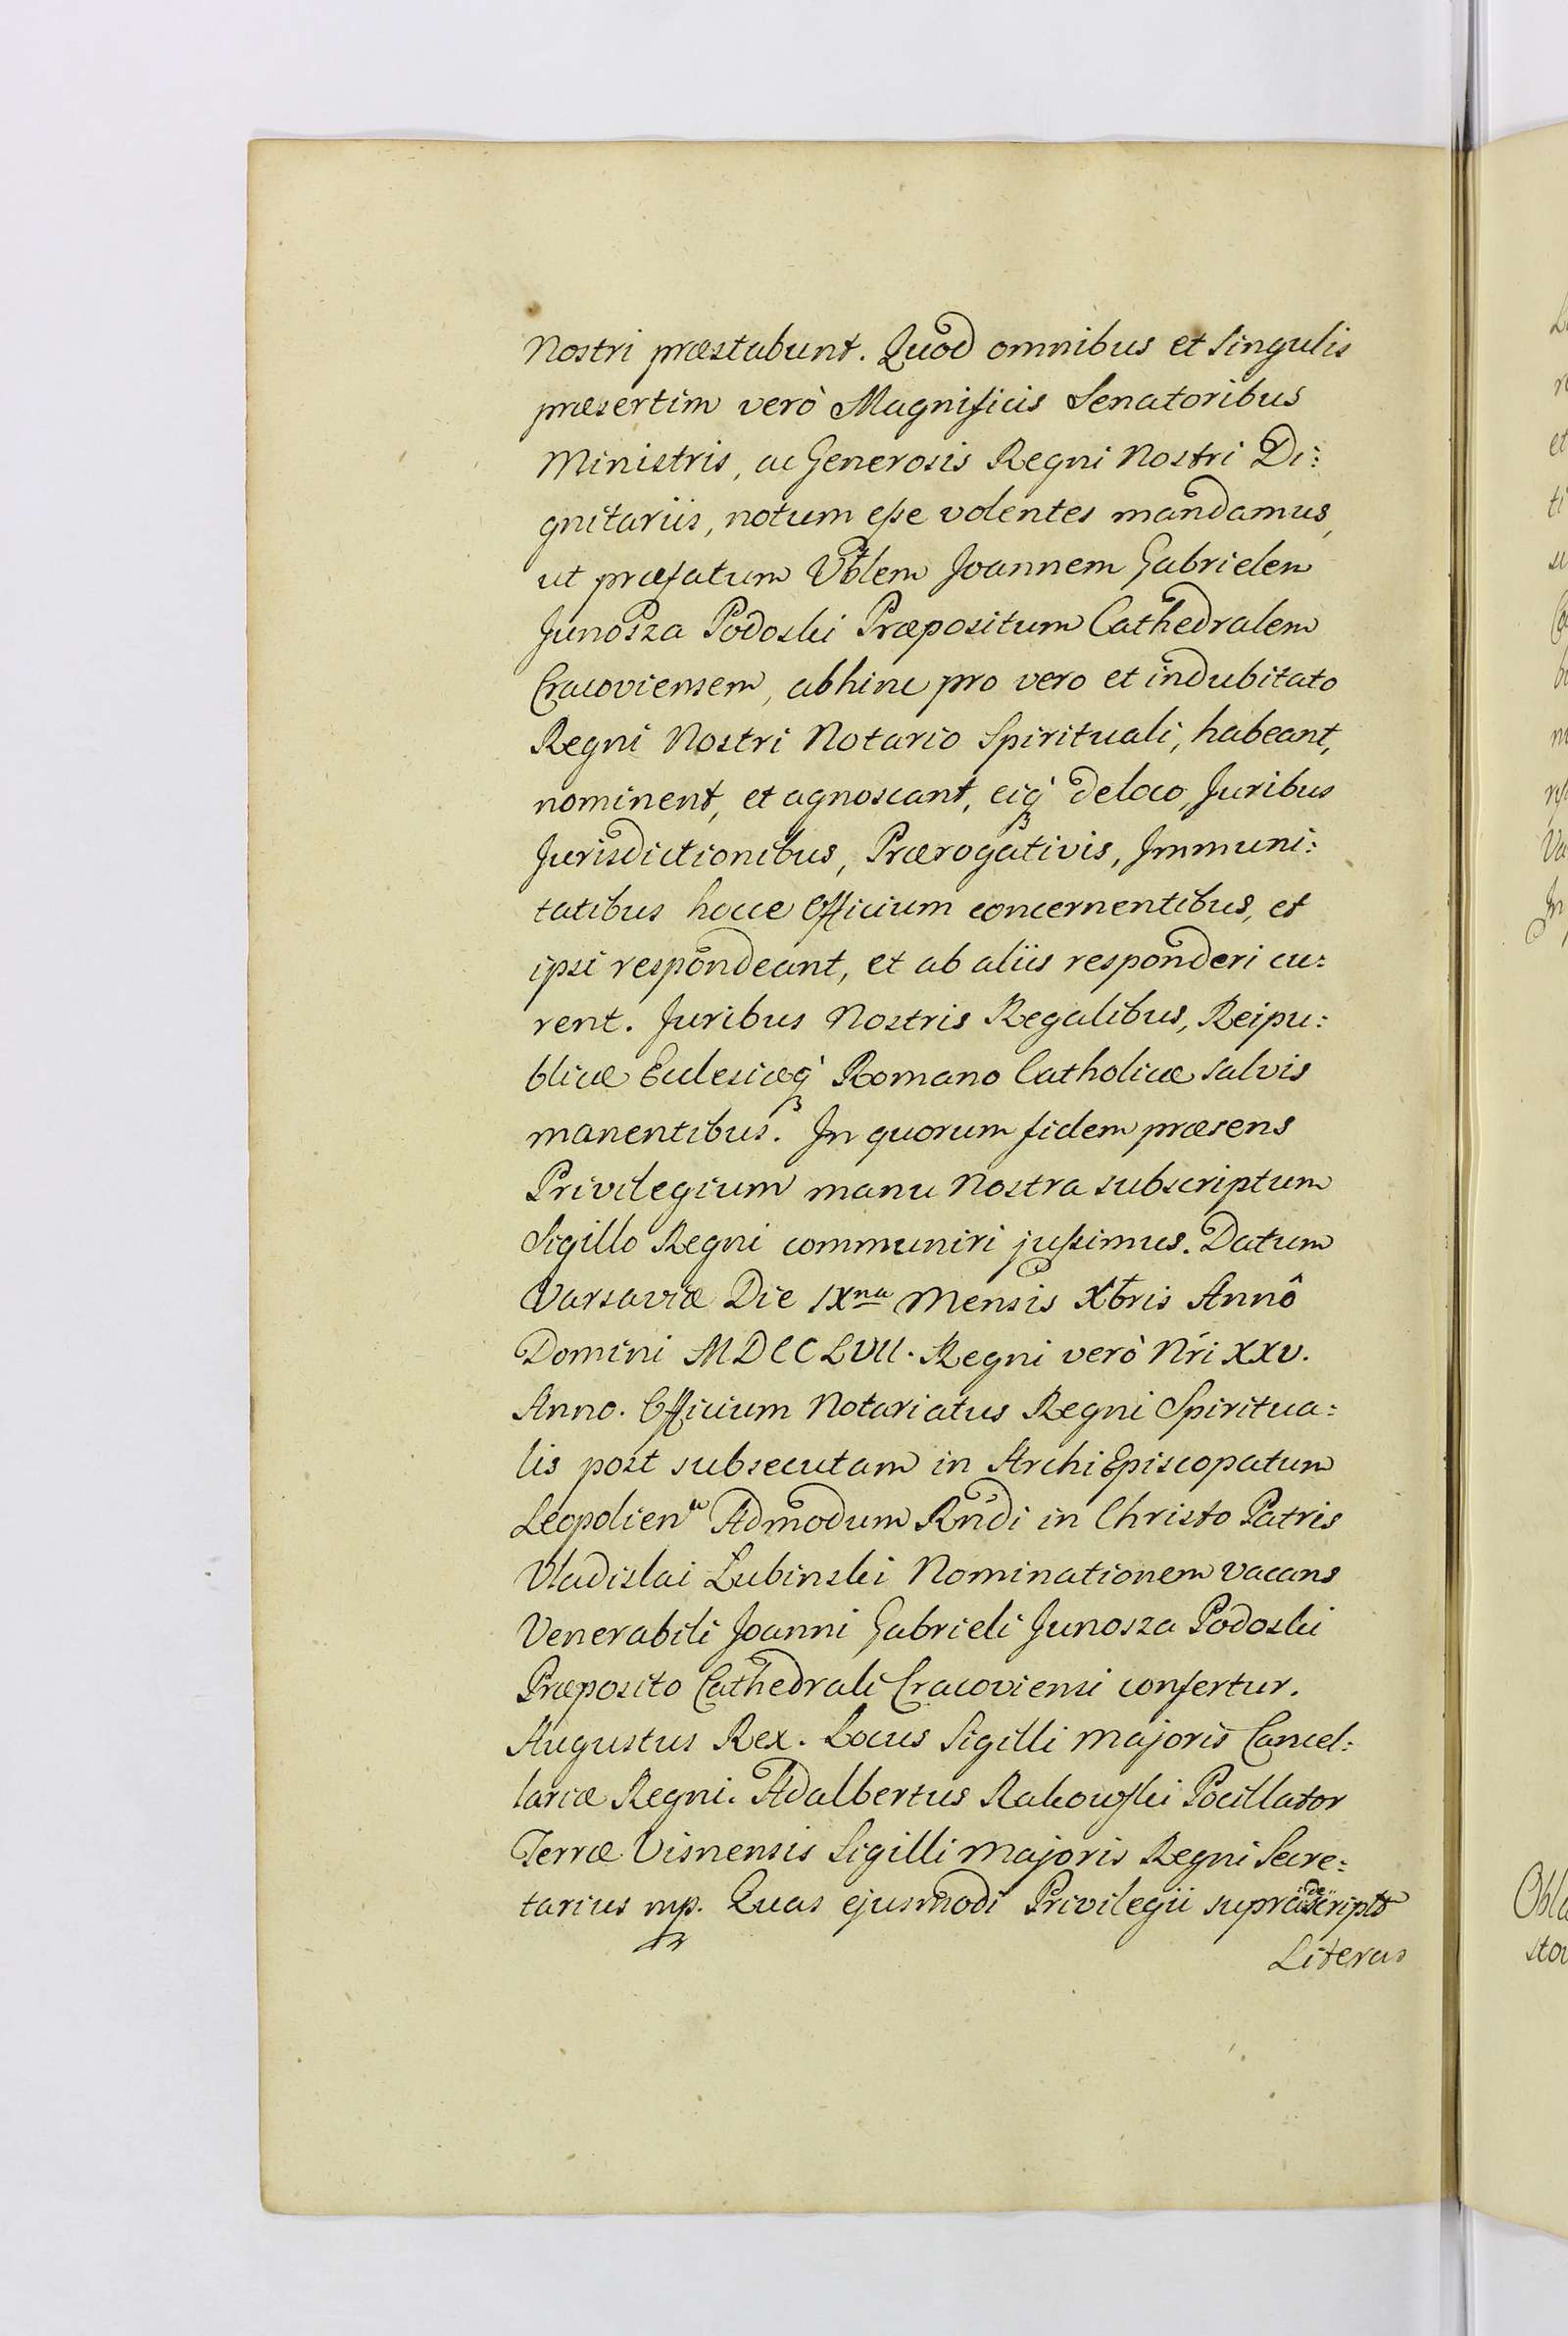 Nostri præstabunt. Quod omnibus et Singulis
præsertim verò Magnificis Senatoribus
Ministris, ac Generosis Regni Nostri Di:
gnitariis, notum esse volentes mandamus,
ut præfatum Vblem Joannem Gabrielem
Junosza Podoski Præpositum Cathedralem
Cracoviensem, abhinc pro vero et indubitato
Regni Nostri Notario Spirituali, habeant,
nominent, et agnoscant, eiq́ꝫ de loco, Juribus
Jurisdictionibus, Prærogativis, Immuni:
tatibus hocce Officium concernentibus, et
ipsi respondeant, et ab aliis responderi cu:
rent. Juribus Nostris Regalibus, Reipu:
blicæ Ecclesiæq́ꝫ Romano Catholicæ salvis
manentibus. In quorum fidem præsens
Privilegium manu Nostra subscriptum
Sigillo Regni communiri jussimus. Datum
Varsaviæ Die IXna Mensis Xbris Annô
Domini MDCCLVII. Regni verò Nri XXV.
Anno. Officium Notariatus Regni Spiritua:
lis post subsecutam in ArchiEpiscopatum
Leopolien Admodum Rndi in Christo Patris
Vladislai Lubinski Nominationem vacans
Venerabili Joanni Gabrieli Junosza Podoski
Præposito Cathedrali Cracoviensi confertur.
Augustus Rex. Locus Sigilli Majoris Cancel:
lariæ Regni. Adalbertus Rakowski Pocillator
Terræ Visnensis Sigilli Majoris Regni Secre:
tarius mp. Quas ejusmodi Privilegii
Literas